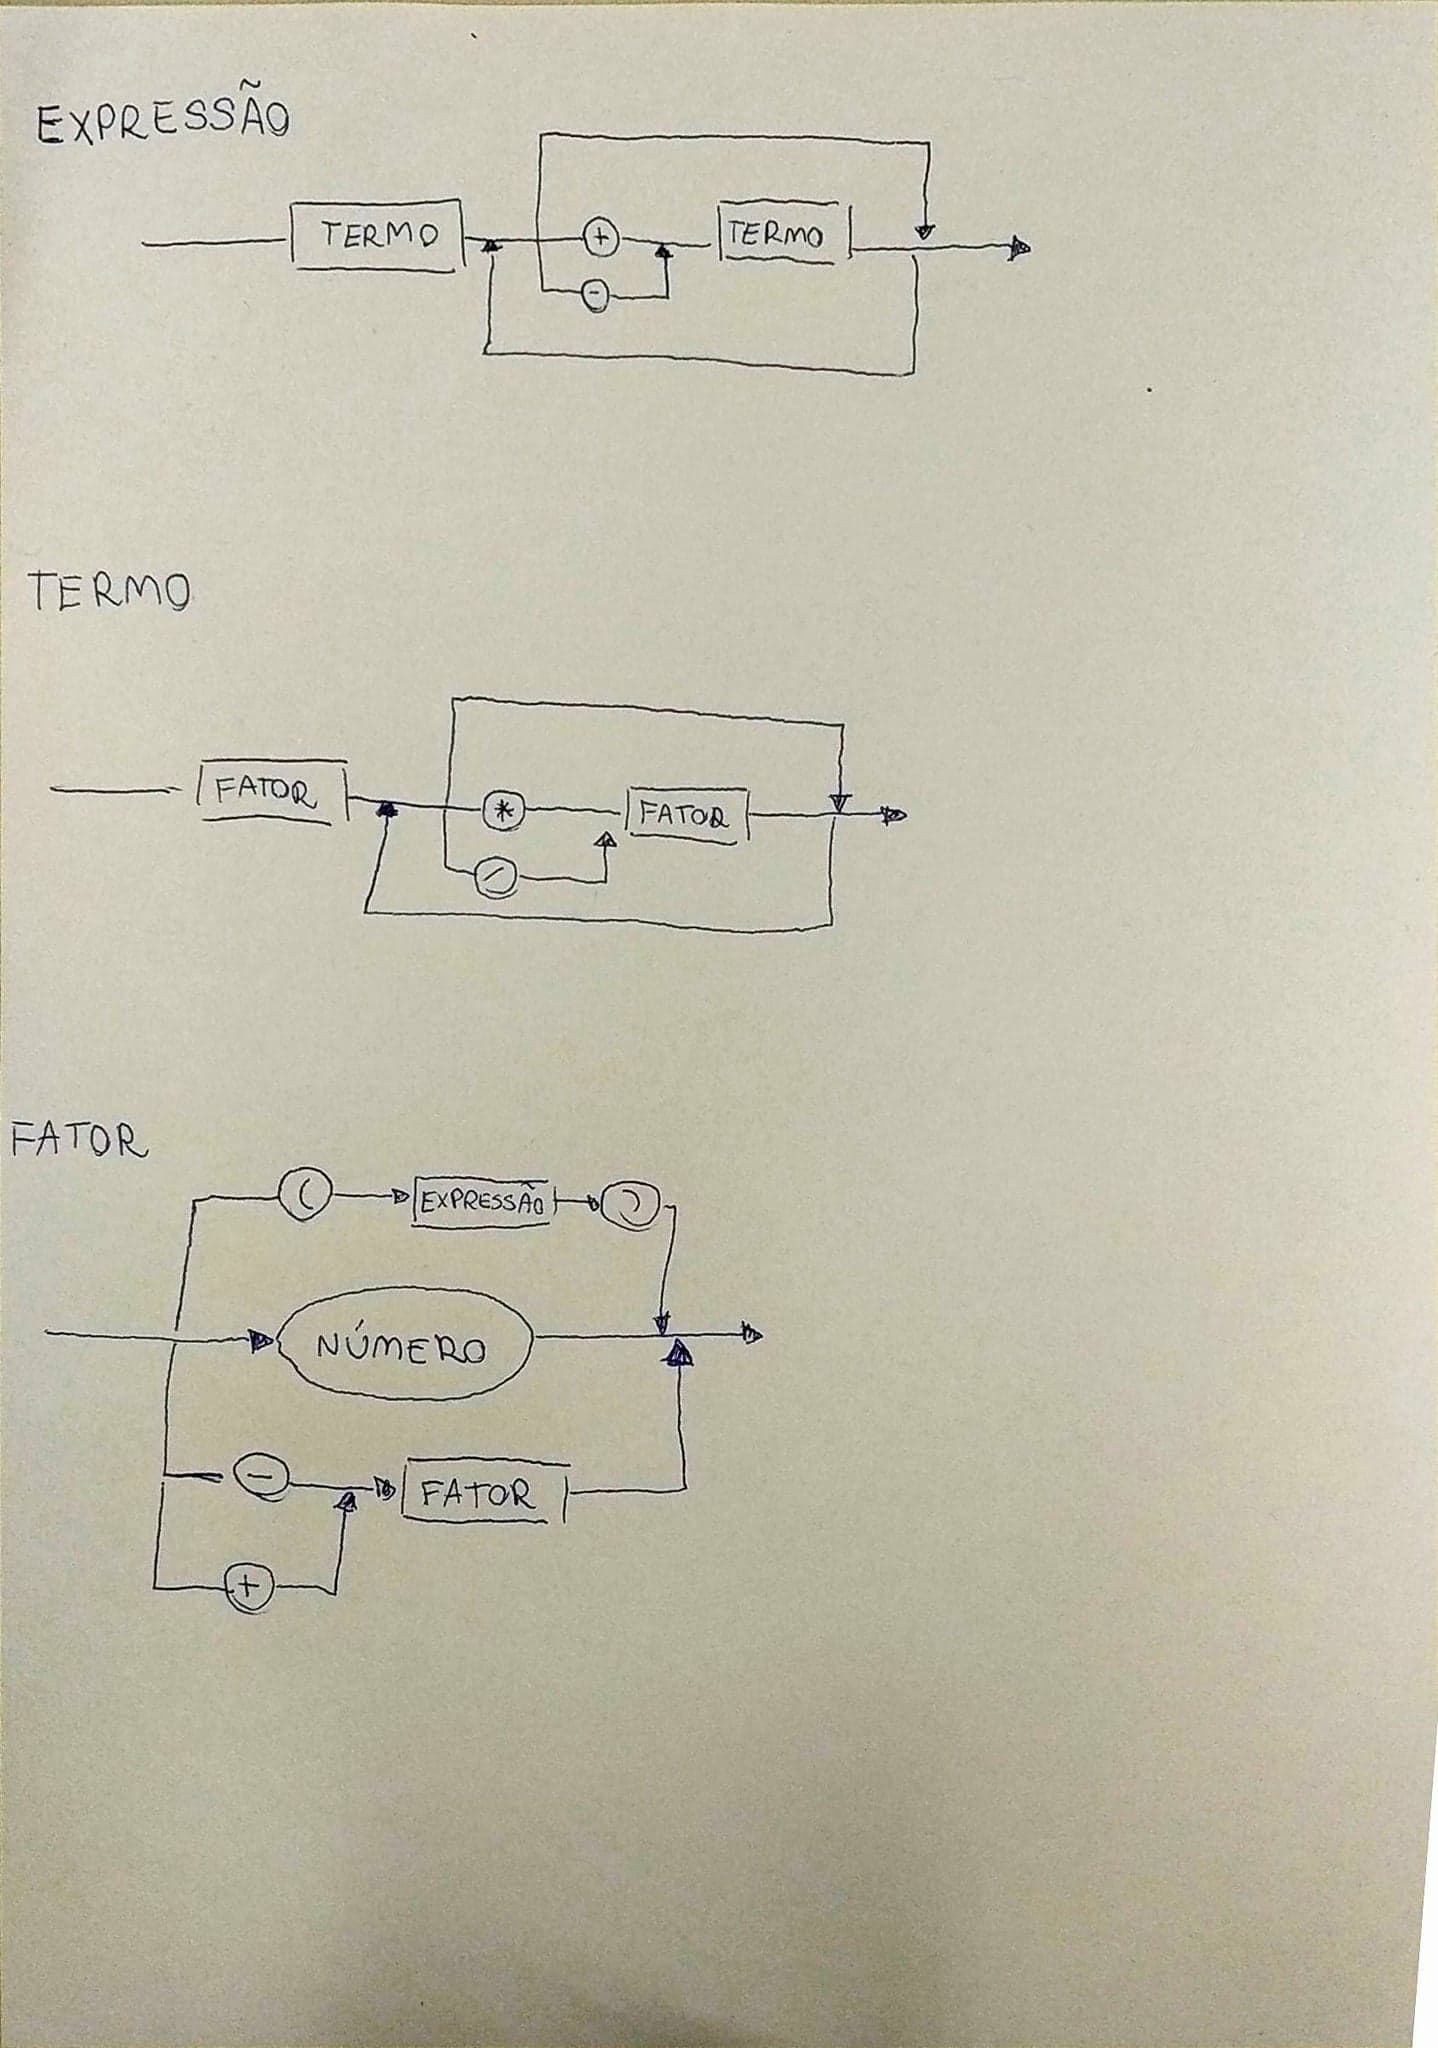 EXPRESSÃO
TERMO + TERMO
-
TERMO
FATOR * FATOR
/
FATOR
( EXPRESSÃO )
NÚMERO
- FATOR
+